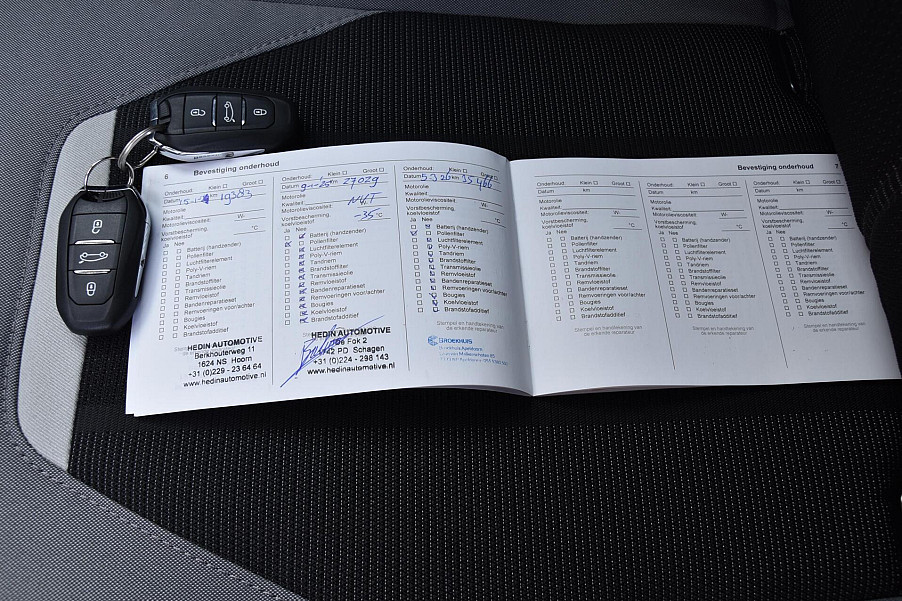 6 Bevestiging onderhoud
Onderhoud: Klein Groot
Datum 15-1- km 19383
Motorolie
Kwaliteit
Motorolieviscositeit W-
Vorstbescherming, koelvloeistof °C
Ja Nee
Batterij (handzender)
Pollenfilter
Luchtfilterelement
Poly-V-riem
Tandriem
Brandstoffilter
Transmissieolie
Remvloeistof
Bandenreparatieset
Remvoeringen voor/achter
Bougies
Koelvloeistof
Brandstofadditief
HEDIN AUTOMOTIVE
Berkhouterweg 11
1624 NS Hoorn
+31 (0)229 - 23 64 64
www.hedinautomotive.nl
Onderhoud: Klein Groot
Datum km 27029
Motorolie
Kwaliteit
Motorolieviscositeit
Vorstbescherming, koelvloeistof -35 °C
Ja Nee
Batterij (handzender)
Pollenfilter
Luchtfilterelement
Poly-V-riem
Tandriem
Brandstoffilter
Transmissieolie
Remvloeistof
Bandenreparatieset
Remvoeringen voor/achter
Bougies
Koelvloeistof
Brandstofadditief
HEDIN AUTOMOTIVE
De Fok 2
1742 PD Schagen
+31 (0)224 - 298 143
www.hedinautomotive.nl
Onderhoud: Klein Groot
Datum 5-3-26 km 35466
Motorolie
Kwaliteit
Motorolieviscositeit W-
Vorstbescherming, koelvloeistof °C
Ja Nee
Batterij (handzender)
Pollenfilter
Luchtfilterelement
Poly-V-riem
Tandriem
Brandstoffilter
Transmissieolie
Remvloeistof
Bandenreparatieset
Remvoeringen voor/achter
Bougies
Koelvloeistof
Brandstofadditief
Stempel en handtekening van
de erkende reparateur
BROEKHUIS
Bevestiging onderhoud 7
Onderhoud: Klein Groot
Datum km
Motorolie
Kwaliteit
Motorolieviscositeit W-
Vorstbescherming, koelvloeistof °C
Ja Nee
Batterij (handzender)
Pollenfilter
Luchtfilterelement
Poly-V-riem
Tandriem
Brandstoffilter
Transmissieolie
Remvloeistof
Bandenreparatieset
Remvoeringen voor/achter
Bougies
Koelvloeistof
Brandstofadditief
Stempel en handtekening van
de erkende reparateur
Onderhoud: Klein Groot
Datum km
Motorolie
Kwaliteit
Motorolieviscositeit W-
Vorstbescherming, koelvloeistof °C
Ja Nee
Batterij (handzender)
Pollenfilter
Luchtfilterelement
Poly-V-riem
Tandriem
Brandstoffilter
Transmissieolie
Remvloeistof
Bandenreparatieset
Remvoeringen voor/achter
Bougies
Koelvloeistof
Brandstofadditief
Stempel en handtekening van
de erkende reparateur
Onderhoud: Klein Groot
Datum km
Motorolie
Kwaliteit
Motorolieviscositeit W-
Vorstbescherming, koelvloeistof °C
Ja Nee
Batterij (handzender)
Pollenfilter
Luchtfilterelement
Poly-V-riem
Tandriem
Brandstoffilter
Transmissieolie
Remvloeistof
Bandenreparatieset
Remvoeringen voor/achter
Bougies
Koelvloeistof
Brandstofadditief
Stempel en handtekening van
de erkende reparateur